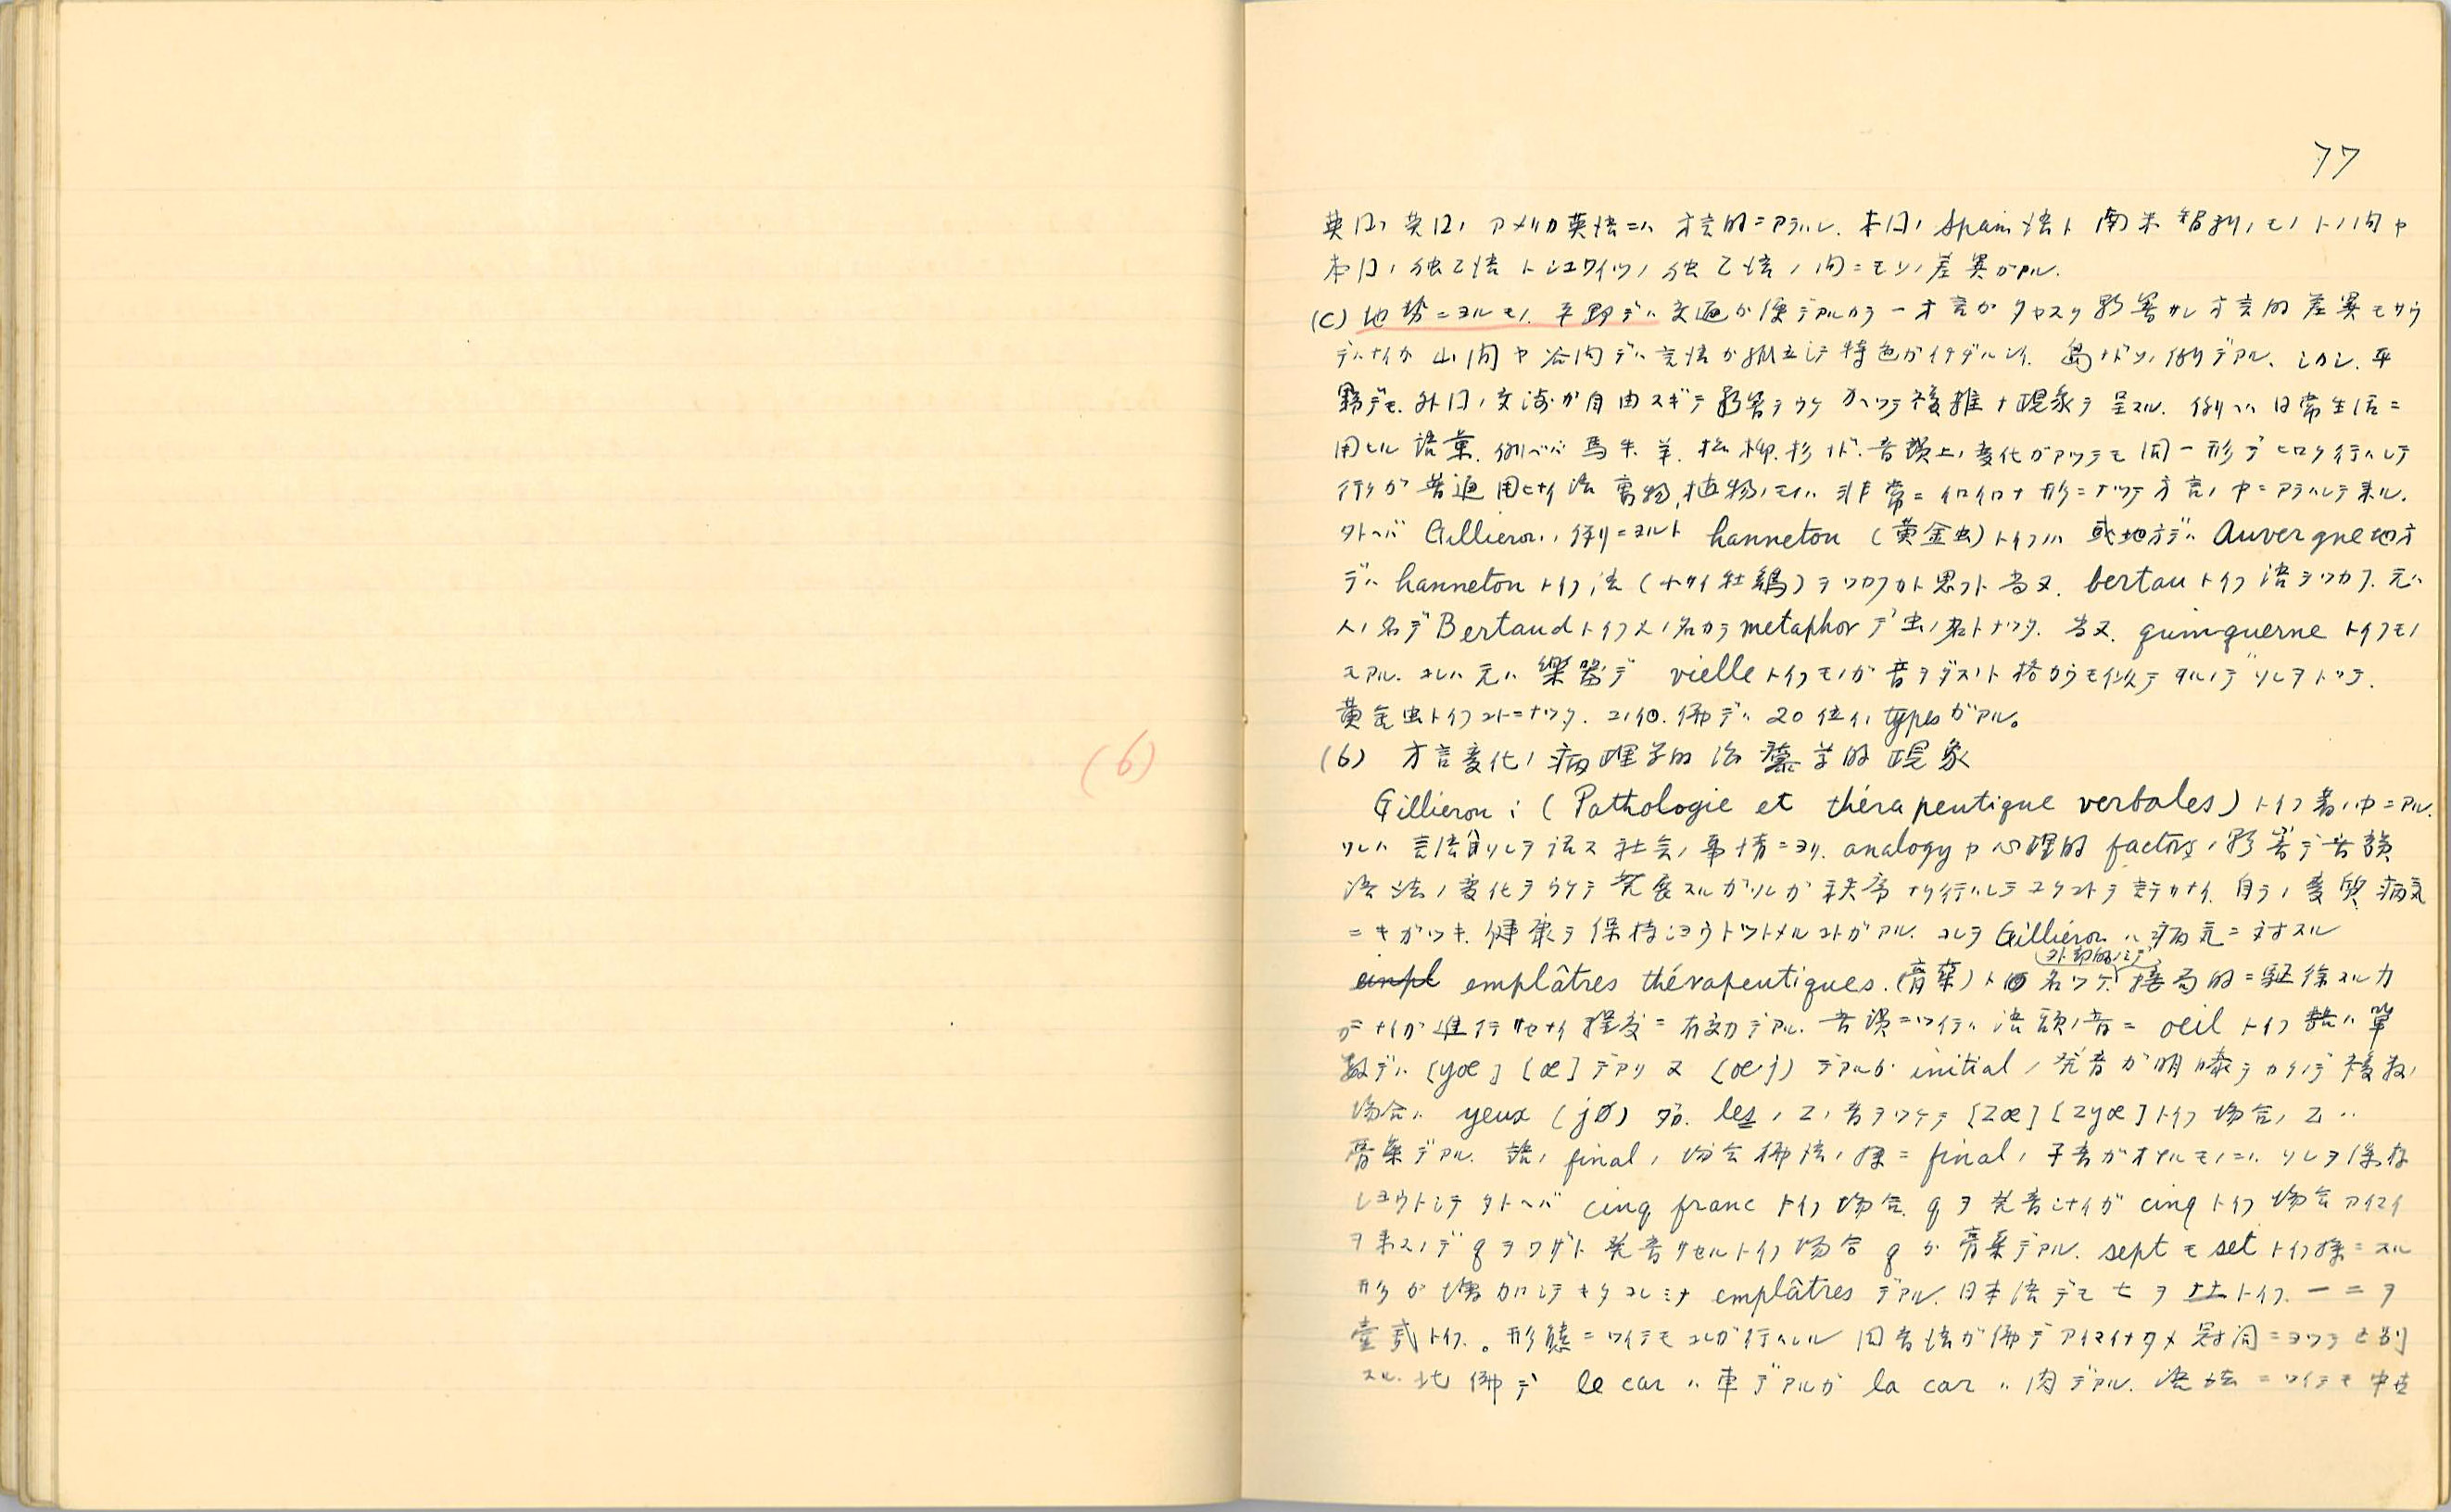 77
英国ノ英国ノアメリカ英語ニハ方言的ニアラハレ. 本国ノSpain語ト南米智利ノモノトノ間ヤ
本国ノ独乙語トシュワイツノ独乙語ノ間ニモソノ差異ガアル.
(C) 地勢ニヨルモノ. 平野デハ交通ガ便デアルカラ一方言ガタヤスク影響サレ方言的差異モサウ
デハナイガ山間ヤ谷間デハ言語ガ孤立シテ特色ガイチヂルシイ. 島ナドソノ例デアル. シカシ. 平
野デモ. 外国ノ交渉ガ自由スギテ影響ヲウケカヘツテ複雑ナ現象ヲ呈スル. 例ヘハ日常生活ニ
用ヒル語彙. 例ヘバ馬牛. 羊. 松柳. 杉ナド. 音韻上ノ変化ガアツテモ同一形デヒロク行ハレテ
行クガ普通用ヒナイ語 植物ノモノハ非常ニイロイロナ形ニナツテ方言ノ中ニアラハレテ来ル.
タトヘバ Gilliéronノ例ニヨルト hanneton (黄金虫)トイフノハ或地方デハ Auvergne地方
デハ hannetonトイフ語 ヲツカフカト思フト当又. bertauトイフ語ヲツカフ. 元ハ
人ノ名デ Bertaudトイフ人ノ名カラ metaphorデ虫ノ名トナツタ. 当又. quinquerneトイフモノ
モアル. コレハ元ハ楽器デ vielleトイフモノガ音ヲダスノト格カウモ似テヰルノデソレヲトツテ.
黄金虫トイフコトニナツタ. コノ他. 佛デハ20位イノtypesガアル。
(6)
(6) 方言変化ノ病理学的治療学的現象
Gilliéron : (Pathologie et thérapeutique verbales)トイフ書ノ中ニアル.
ソレハ言語自ソレヲ話ス社会ノ事情ニヨリ. analogyヤ心理的factorsノ影響デ音韻
語法ノ変化ヲウケテ発展スルガソレガ秩序ナク行ハレテユクコトヲ許サナイ. 自ラノ変質病気
ニキガツキ. 健康ヲ保持シヨウトツトメルコトガアル. コレヲ Gilliéronハ病気ニ対スル
外部的ニシテ
empl emplâtres thérapeutiques. (膏薬)ト名ヅケ. 接局的ニ駆除スル力
ガナイガ進行サセナイ程度ニ有効デアル. 音韻ニツイテハ語頭ノ音ニ oeilトイフ語ハ單
数デハ [yœ] [œ]デアリ又 [œj]デアルガ initialノ発音ガ明瞭ヲカクノデ複数ノ
場合ハ yeux (jø) 即. lesノzノ音ヲツケテ [zœ] [zyœ]トイフ場合ノzハ
膏薬デアル. 語ノfinalノ場合佛語ノ様ニfinalノ子音ガオチルモノニハソレヲ保存
シヨウトシテタトヘバ cinq francトイフ場合. qヲ発音シナイガ cinqトイフ場合アイマイ
ヲ来スノデ qヲワザト発音サセルトイフ場合 qガ膏薬デアル. septモ setトイフ様ニスル
形ガ増加シテキタコレミナ emplâtresデアル. 日本語デモ七ヲナナトイフ. 一二ヲ
壹貳トイフ。形態ニツイテモコレガ行ハレル同音語ガ佛デアイマイナタメ冠詞ニヨツテ区別
スル. 北佛デ le carハ車デアルガ la carハ肉デアル. 語法ニツイテモ中古